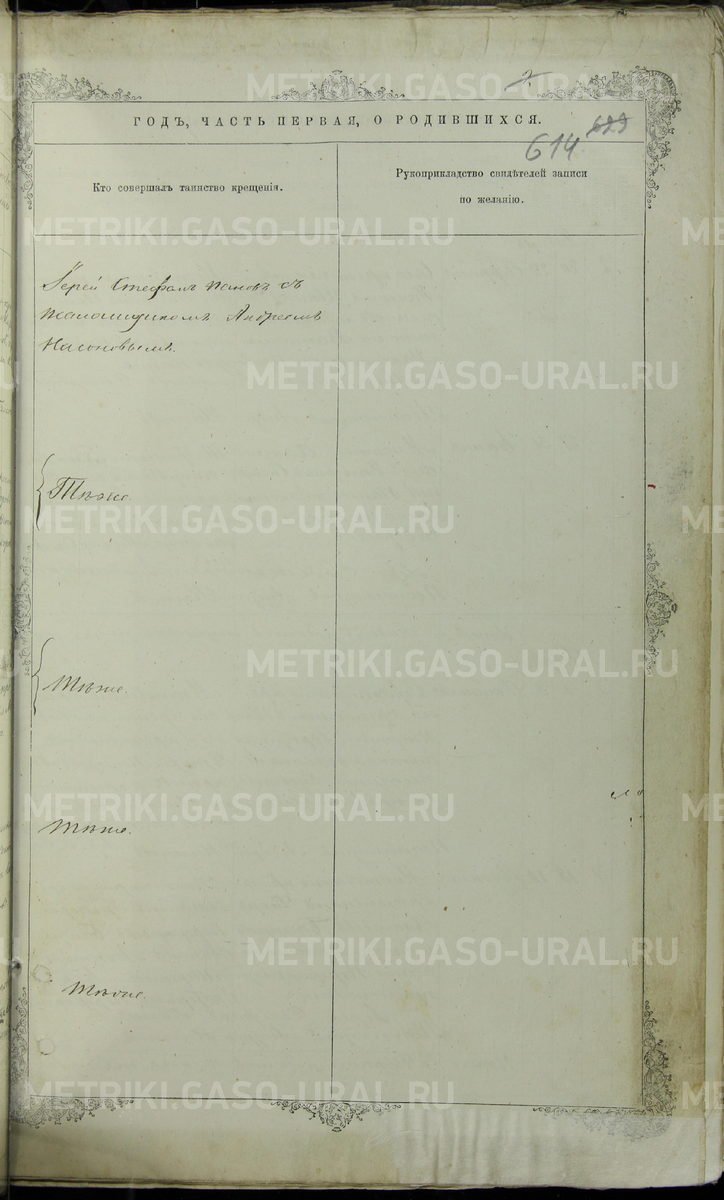 2
ГОДЪ, ЧАСТЬ ПЕРВАЯ, О РОДИВШИХСЯ.
614 623
Кто совершалъ таинство крещенія.
Рукоприкладство свидѣтелей записи
по желанію.
Іерей Стефанъ Пановъ съ
псаломщикомъ Андреемъ
Насоновымъ.
Тѣже.
Тѣже.
Тѣже.
Тѣже.
METRIKI.GASO-URAL.RU